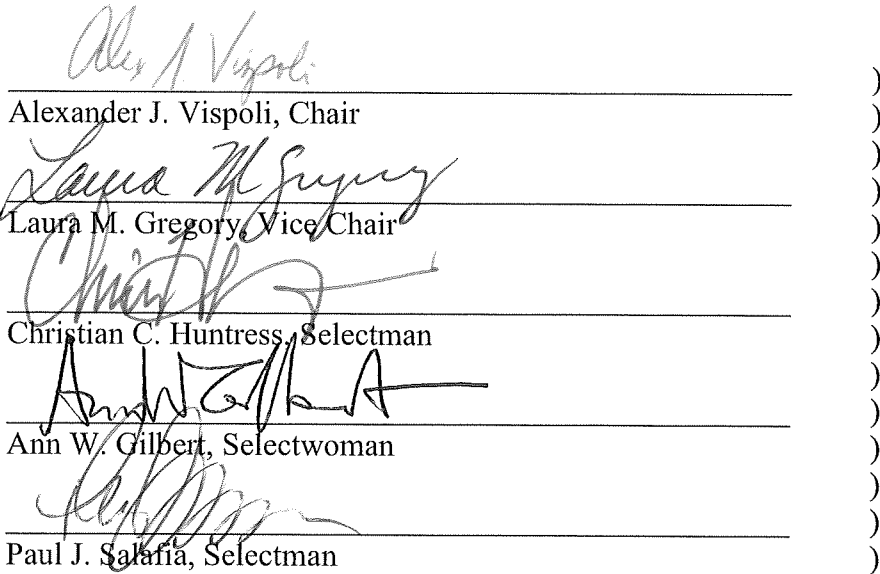 Alex J. Vispoli
)
Alexander J. Vispoli, Chair )
)
Laura M Gregory )
Laura M. Gregory, Vice Chair )
)
)
Christian C. Huntress, Selectman )
)
Ann W Gilbert )
Ann W. Gilbert, Selectwoman )
)
)
Paul J. Salafia, Selectman )